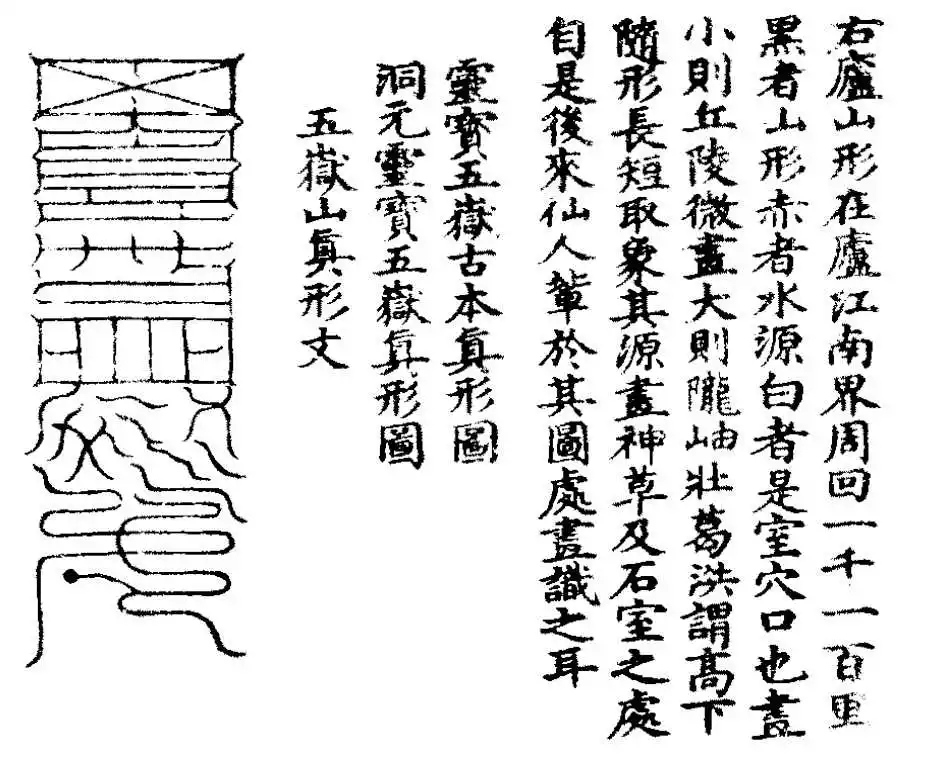 右廬山形在廬江南界周回一千一百里
黑者山形赤者水源白者是室穴口也畫
小則丘陵微畫大則隴岫壯葛洪謂高下
隨形長短取象其源畫神草及石室之處
自是後來仙人輩於其圖處畫識之耳
靈寶五嶽古本眞形圖
洞元靈寶五嶽眞形圖
五嶽山眞形文